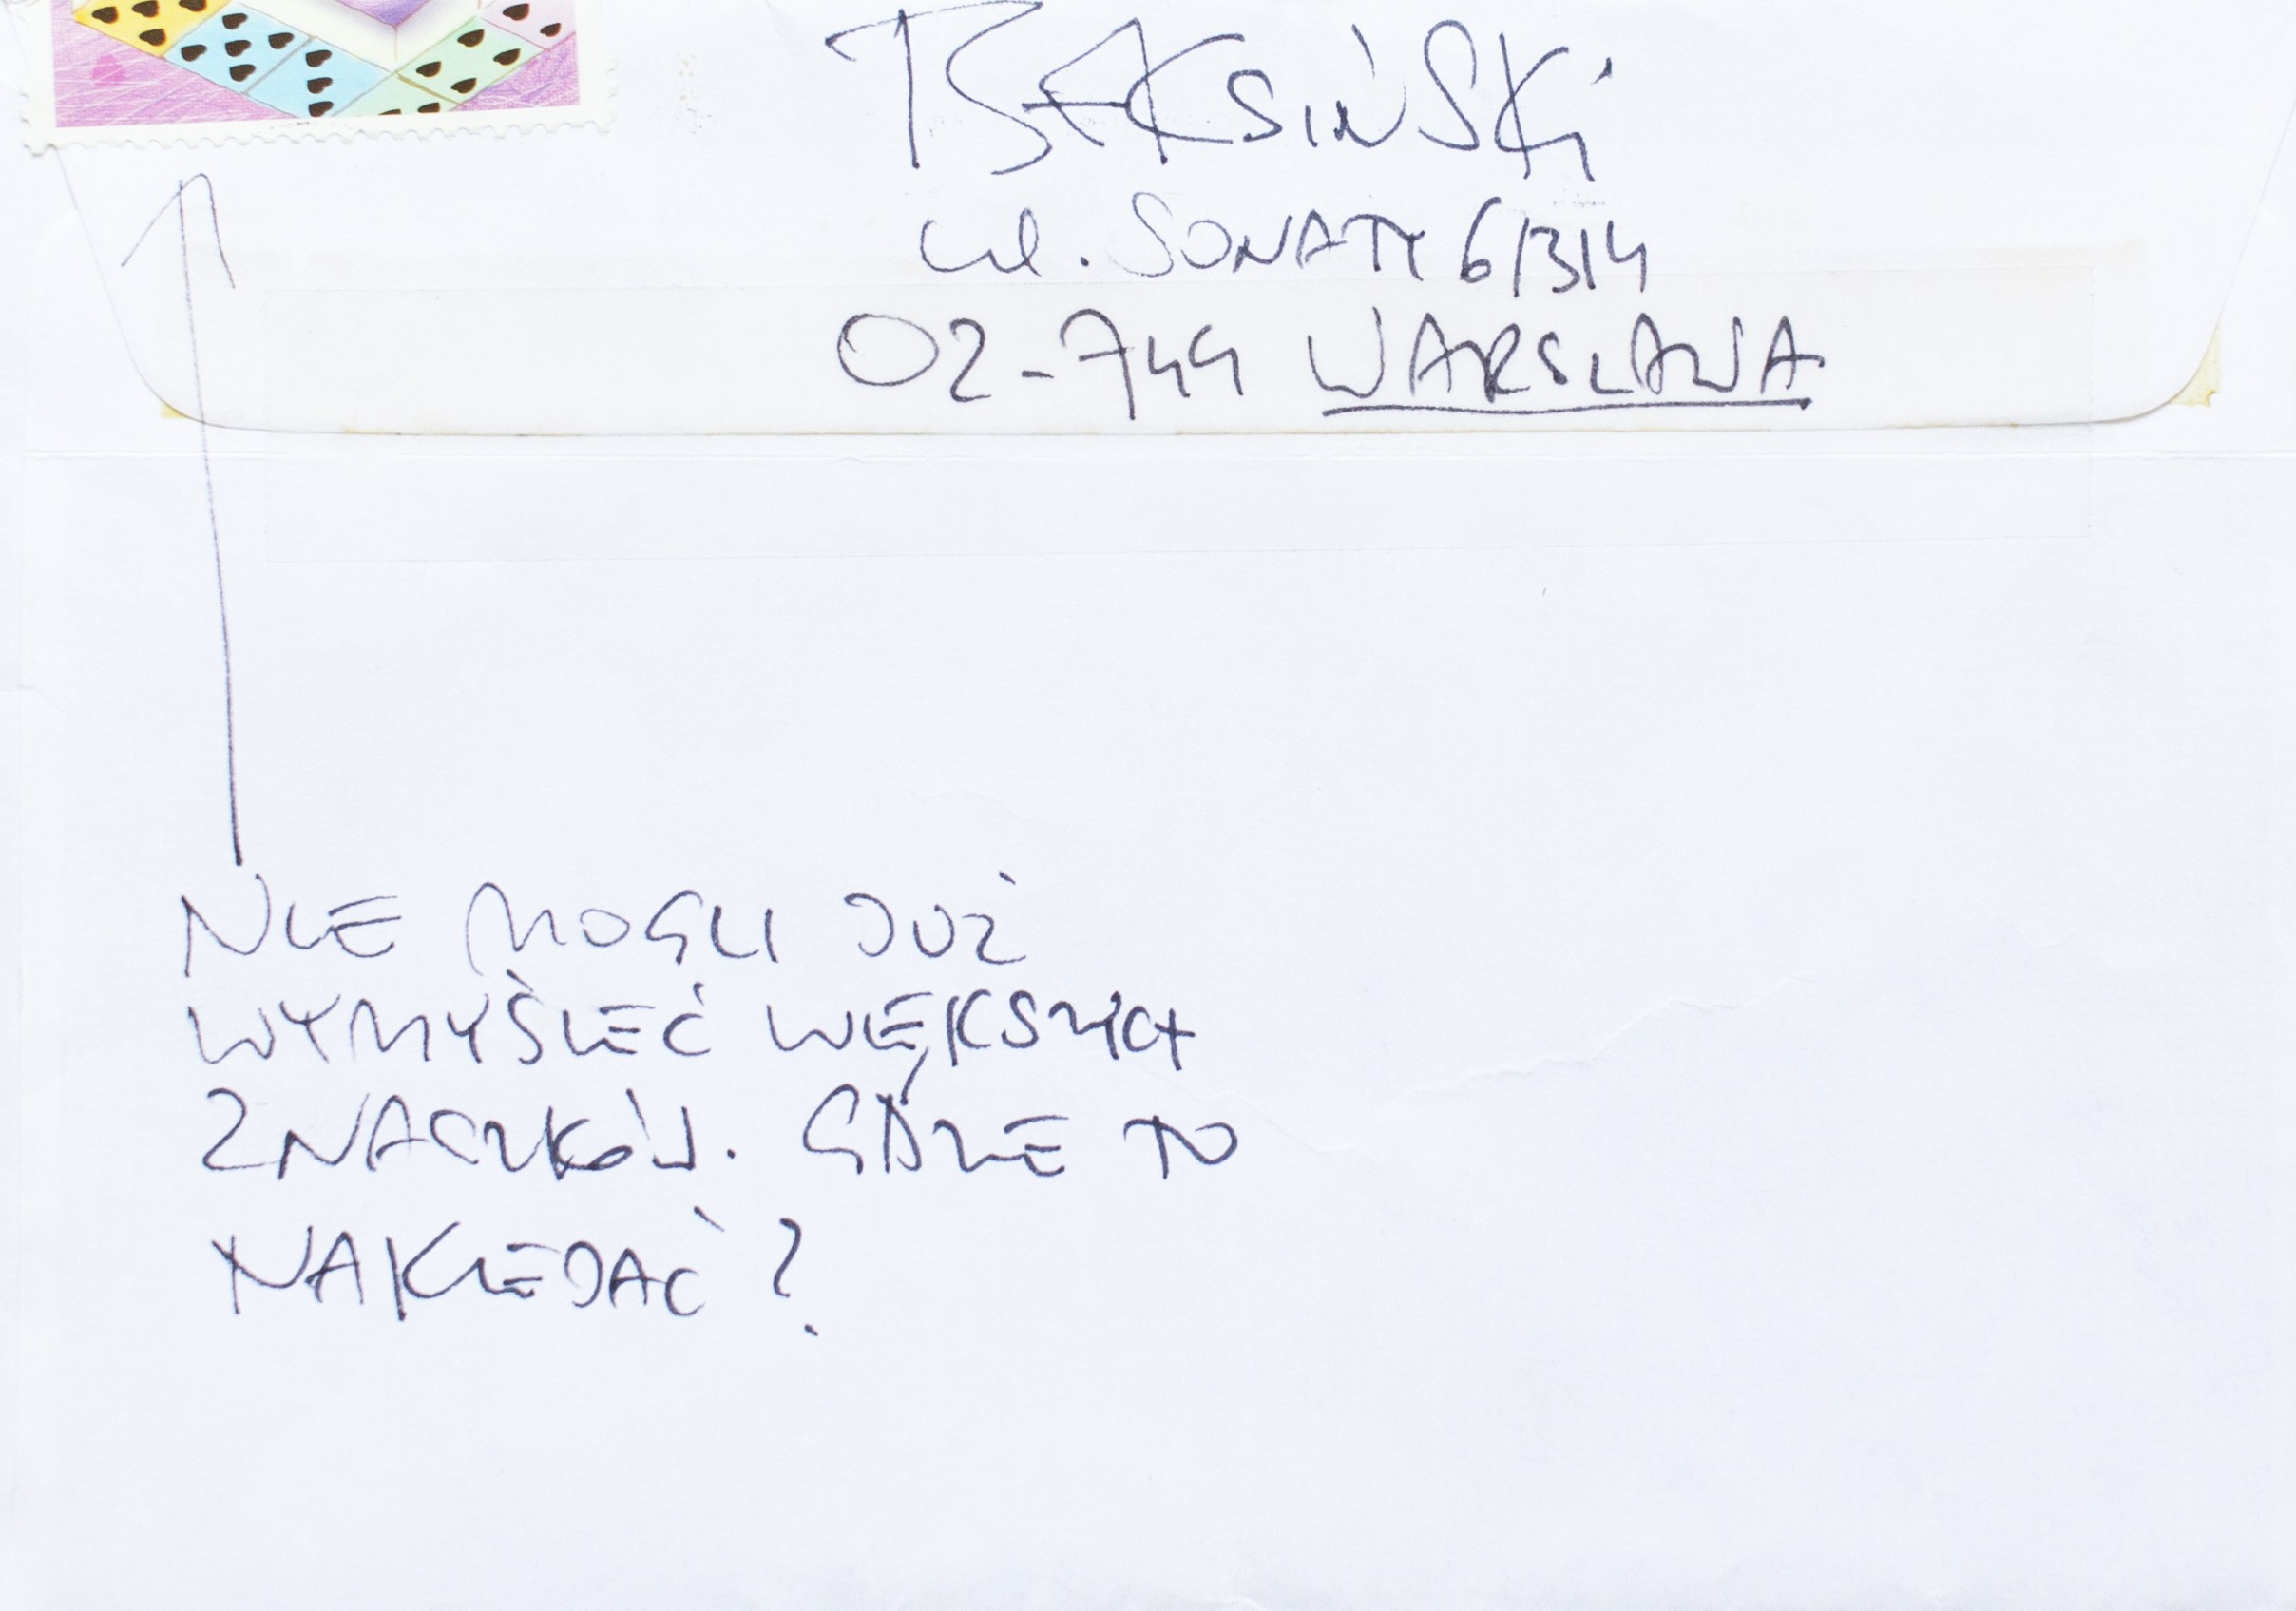 BEKSIŃSKI
ul. SONATY 6/314
02-744 WARSZAWA
NIE MOGLI JUŻ
WYMYŚLEĆ WIĘKSZYCH
ZNACZKÓW. GDZIE TO
NAKLEJAĆ?